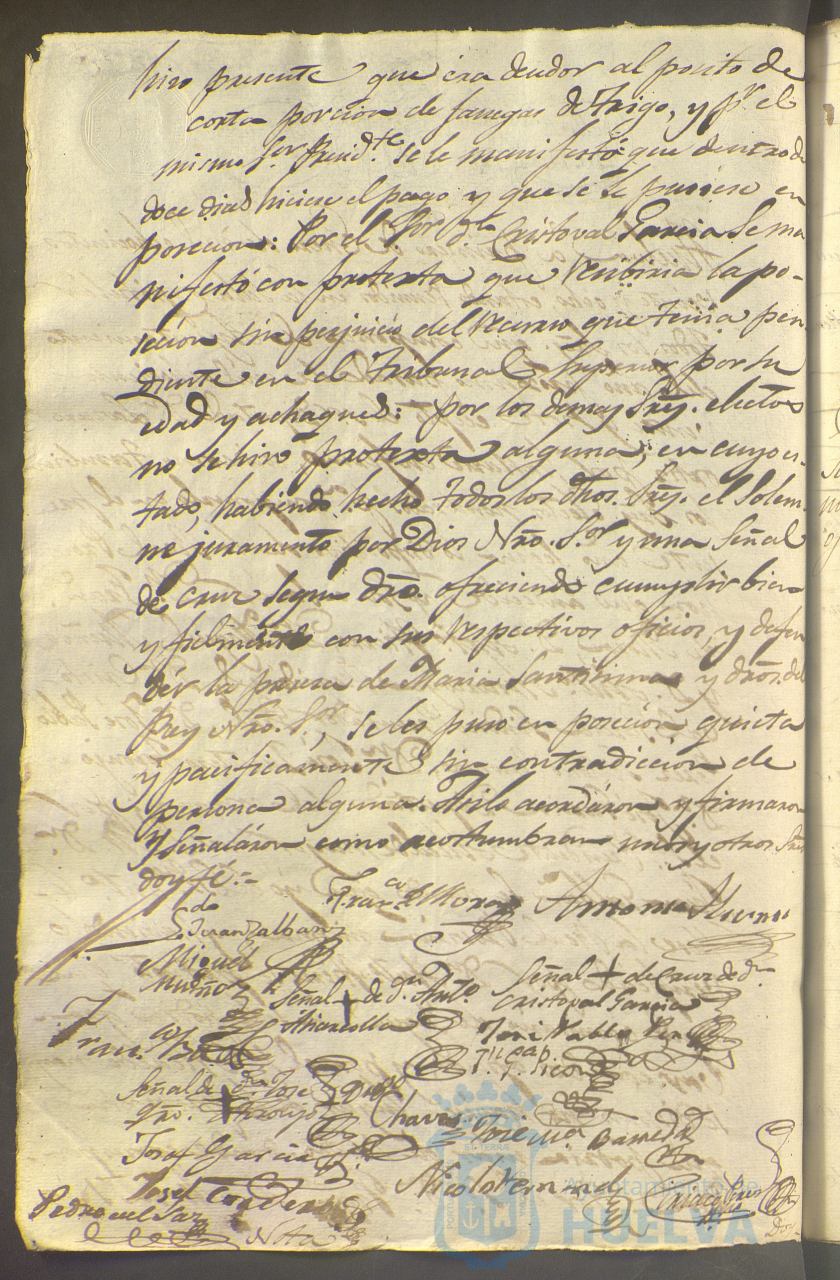 hizo presente que era deudor al posito de
corta porcion de fanegas de trigo, y pr. el
mismo Sor. Presid.te se le manifestó que dentro de
doce dias hiciese el pago y que se le pusiese en
posecion: Por el Sor. dn. Cristoval Garcia se ma
nifestó con protexta que recibiria la po-
secion sin perjuicio del recurso que tenia pen
diente en el Tribunal Superior por su
edad y achaques: por los demas Sres. electos
no se hizo protexta alguna; en cuyo es-
tado, habiendo hecho todos los dhos. Sres. el solem
ne juramento por Dios Nro. Sor. y una Señal
de cruz segun dro. ofreciendo cumplir bien
y fielmente con sus respectivos oficios, y defen
der la pureza de Maria Santisima y dros. del
Rey Nro. Sor., se les puso en posecion quieta
y pacificamente sin contradiccion de
persona alguna. Asi lo acordaron y firmaron
y señalaron como acostumbran unos y otros Sres
doy fé:=
Fran.co Mora Antonio
Miguel
Muñoz
Señal + de dn. Anto.
Señal + de Cruz de dn.
Cristoval Garcia
Jose Pablo Perez
Fran.co
Señal de dn. Jose
Chaves
Josef Garcia
Josef Cordero
Pedro del
Nota
Ayuntamiento de
HUELVA